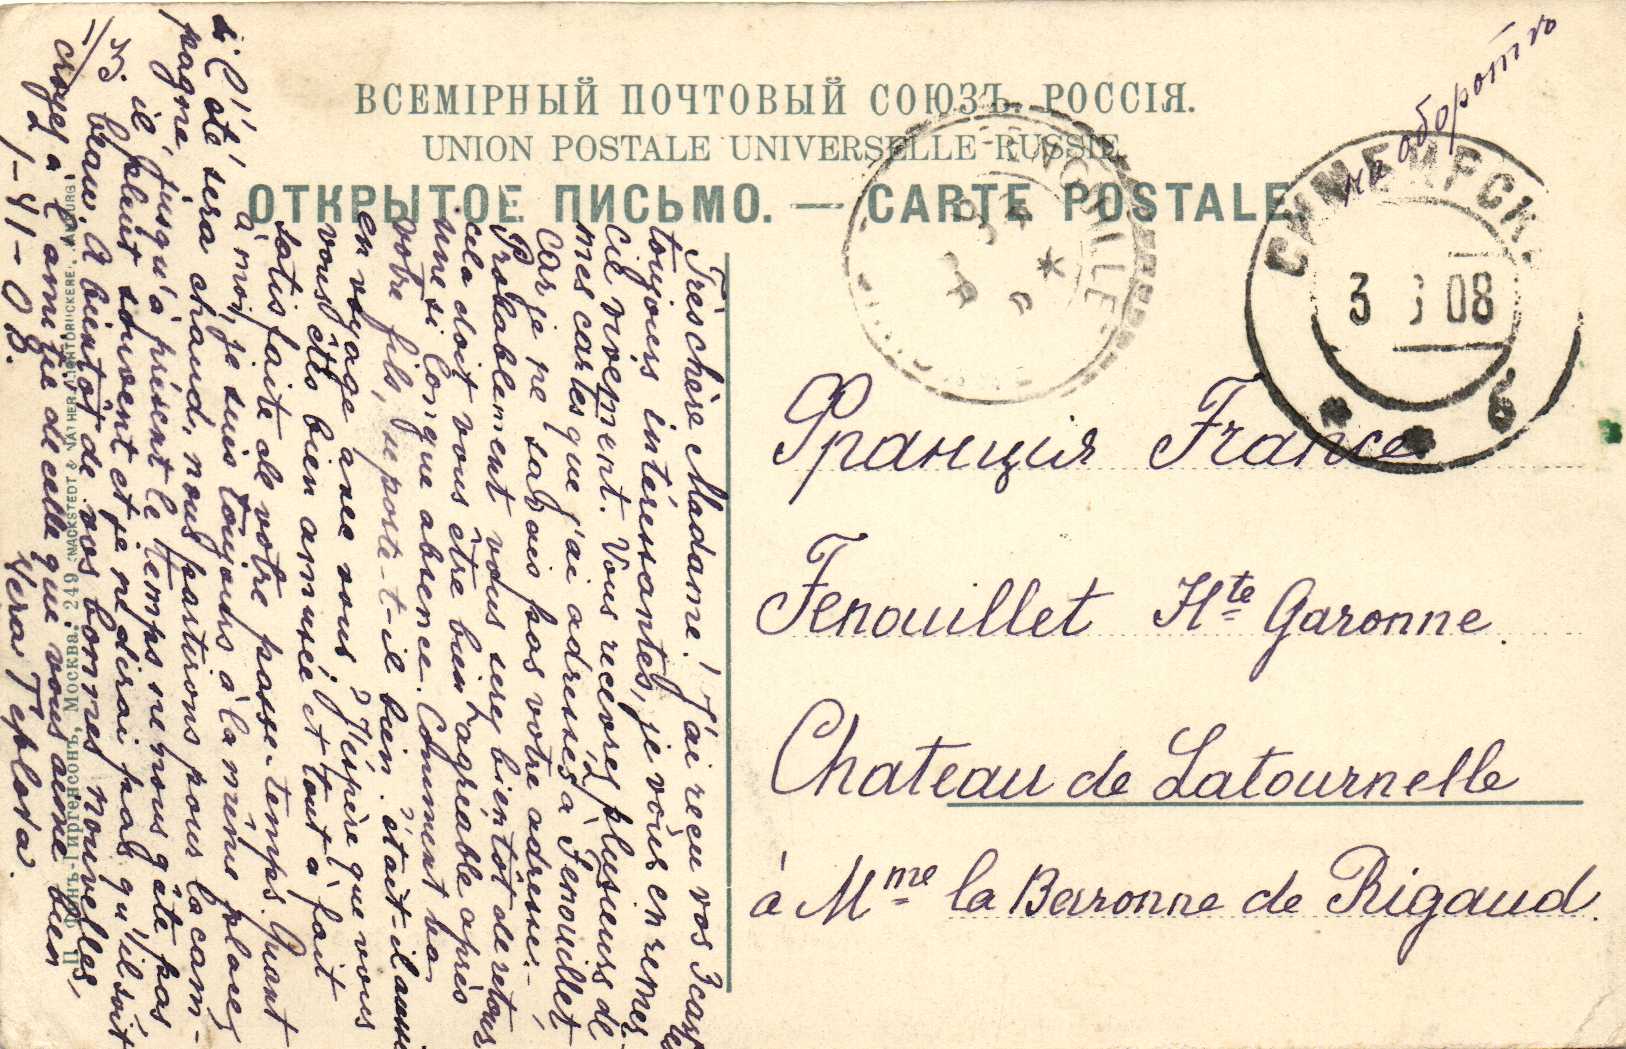 ВСЕМІРНЫЙ ПОЧТОВЫЙ СОЮЗЪ. РОССІЯ.
UNION POSTALE UNIVERSELLE RUSSIE
ОТКРЫТОЕ ПИСЬМО. — CARTE POSTALE
на оборотѣ
СИМБИРСК
3 08
6
Франція France
Fenouillet Hte Garonne
Chateau de Latournelle
à Mme la Baronne de Rigaud.
Très chère Madame! J'ai reçu vos 3 cartes
toujours intéressantes, je vous en remer-
cie vivement. Vous recevrez plusieurs de
mes cartes que j'ai adressés à Fenouillet
car je ne savais pas votre adresse.-
Probablement vous serez bientôt de retour
cela doit vous être bien agréable après
une si longue absence. Comment va
votre fils, se porte-t-il bien, était-il aussi
en voyage avec vous? J'éspère que vous
vous êtes bien amusée et tout à fait
satisfaite de votre passe-temps. Quant
à moi, je suis toujours à la même place,
si l'été sera chaud, nous partirons pour la cam-
pagne, jusqu'à présent le temps ne nous gâte pas
il pleut souvent et je ne dirai pas qu'il soit
beau. A bientôt de vos bonnes nouvelles,
croyez à l'amitié de celle que vous aime bien
Vera Teplova.
Москва. 249